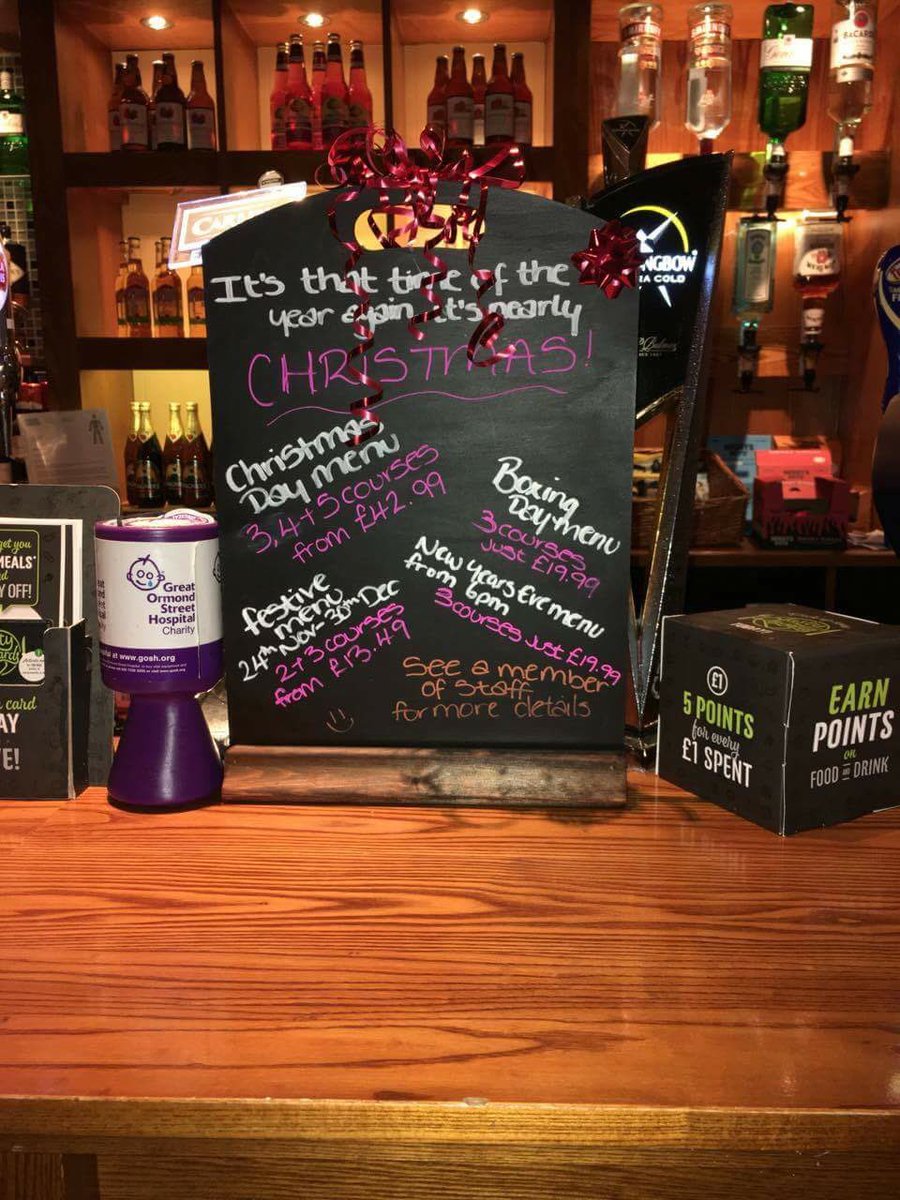 It's that time of the
year again, it's nearly
CHRISTMAS!
Christmas
Day menu
3,4+5 courses
from £42.99
Boxing
Day menu
3 courses
just £19.99
festive
menu
24th Nov - 30th Dec
2+3 courses
from £13.49
New Years Eve menu
from 6pm
3 courses just £19.99
See a member
of staff
for more details
Great
Ormond
Street
Hospital
Charity
www.gosh.org
get you
MEALS*
OFF!
card
£1
5 POINTS
for every
£1 SPENT
EARN
POINTS
on
FOOD AND DRINK
COLD
BACARDI